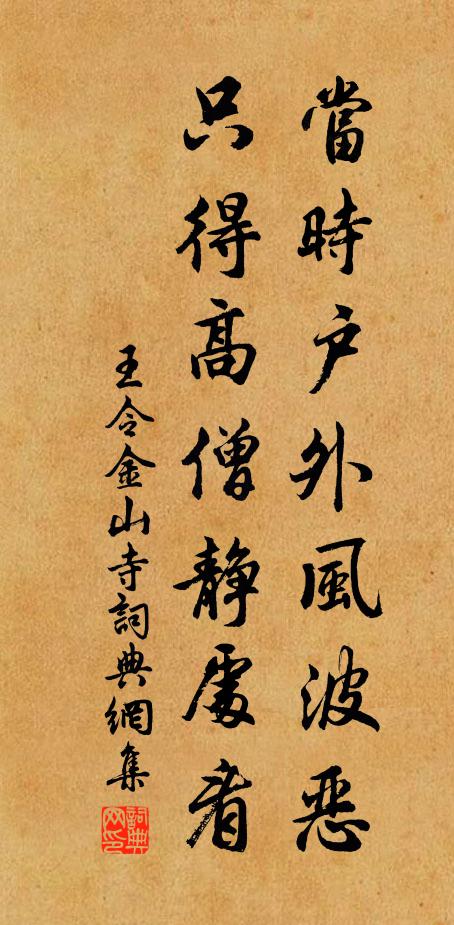 當時戶外風波惡
只得高僧靜處看
王令金山寺詞典網集
詞典網印